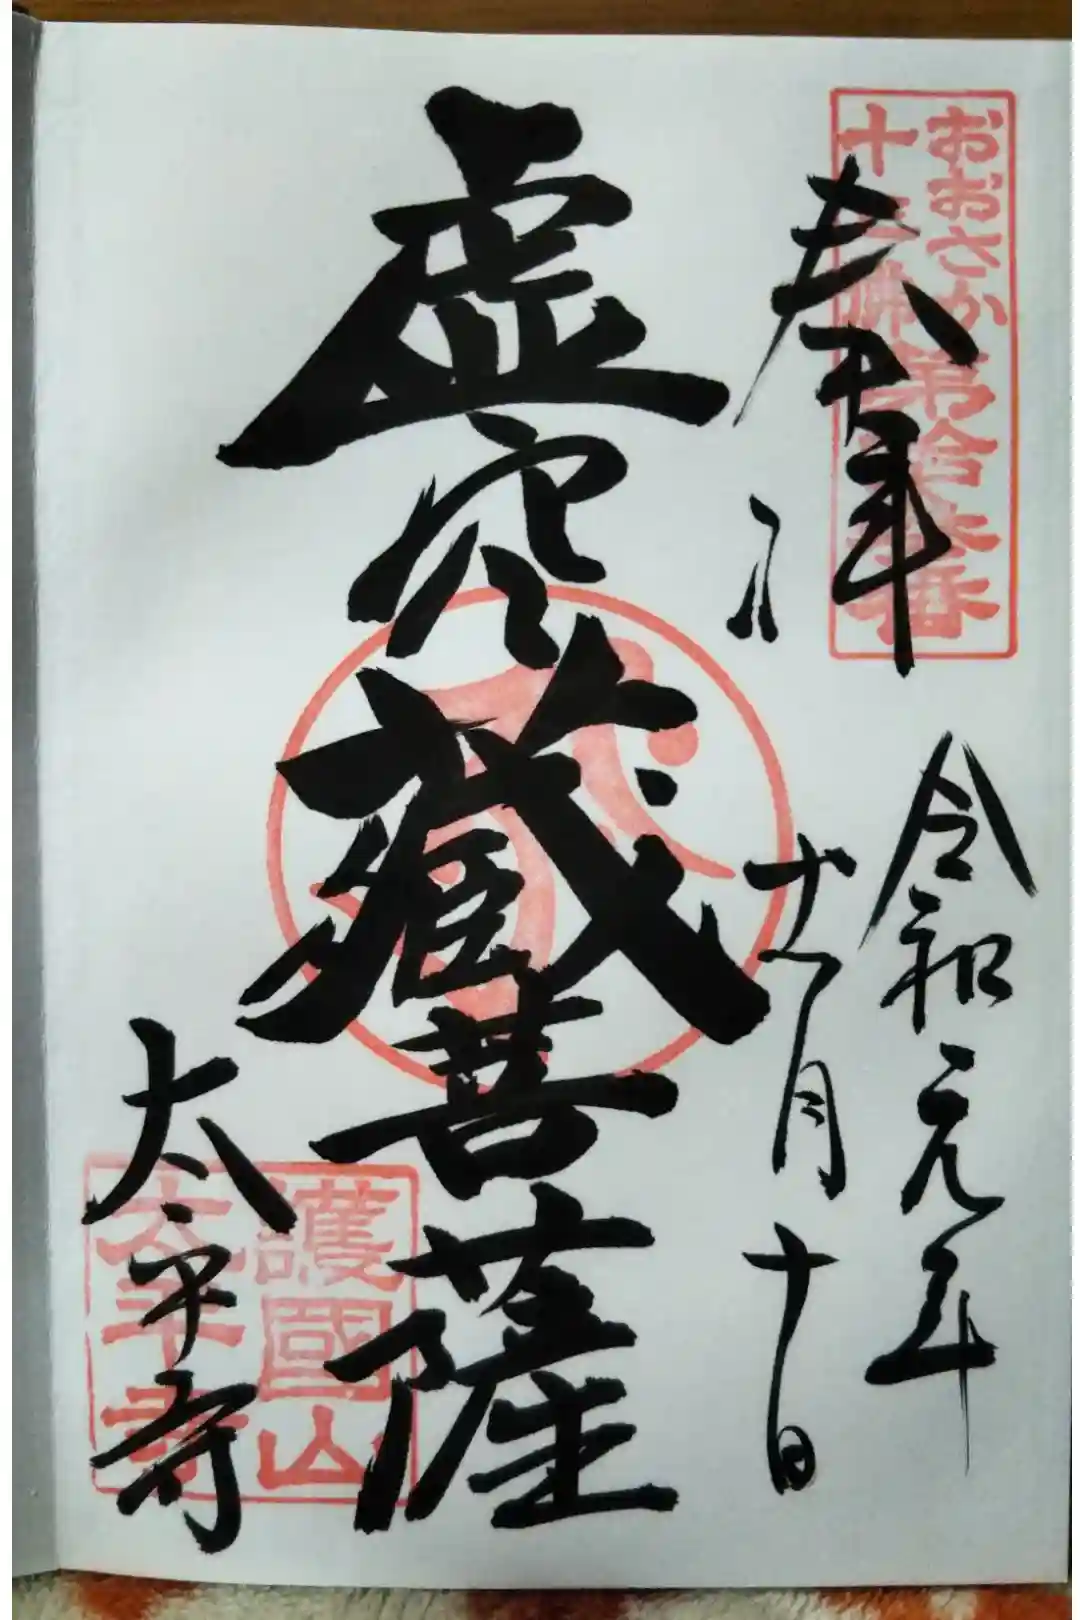 おおさか
十三佛第拾參番
奉拝
令和元年
十二月十日
虚空藏菩薩
護國山
太平寺
太平寺